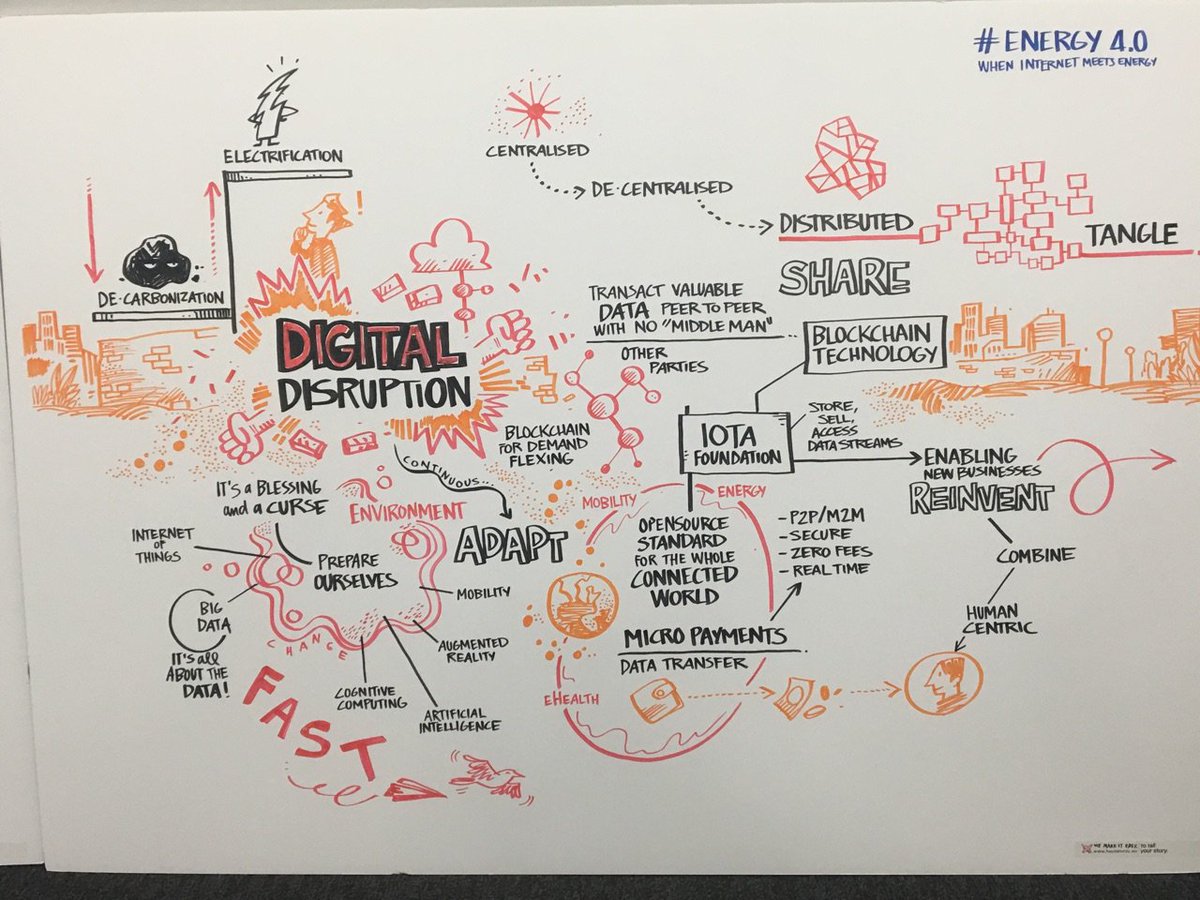 # ENERGY 4.0
WHEN INTERNET MEETS ENERGY
ELECTRIFICATION
DE-CARBONIZATION
!
CENTRALISED
DE-CENTRALISED
DISTRIBUTED
TANGLE
SHARE
TRANSACT VALUABLE
DATA PEER TO PEER
WITH NO "MIDDLE MAN"
OTHER
PARTIES
BLOCKCHAIN
TECHNOLOGY
DIGITAL
DISRUPTION
BLOCKCHAIN
FOR DEMAND
FLEXING
CONTINUOUS...
ADAPT
IOTA
FOUNDATION
STORE,
SELL,
ACCESS
DATA STREAMS
ENABLING
NEW BUSINESSES
REINVENT
COMBINE
HUMAN
CENTRIC
IT'S A BLESSING
and a CURSE
ENVIRONMENT
INTERNET
OF
THINGS
PREPARE
OURSELVES
BIG
DATA
IT'S all
ABOUT THE
DATA!
CHANGE
MOBILITY
AUGMENTED
REALITY
COGNITIVE
COMPUTING
ARTIFICIAL
INTELLIGENCE
FAST
MOBILITY
ENERGY
OPENSOURCE
STANDARD
FOR THE WHOLE
CONNECTED
WORLD
- P2P/M2M
- SECURE
- ZERO FEES
- REAL TIME
MICRO PAYMENTS
DATA TRANSFER
eHEALTH
WE MAKE IT EASY TO tell
your story